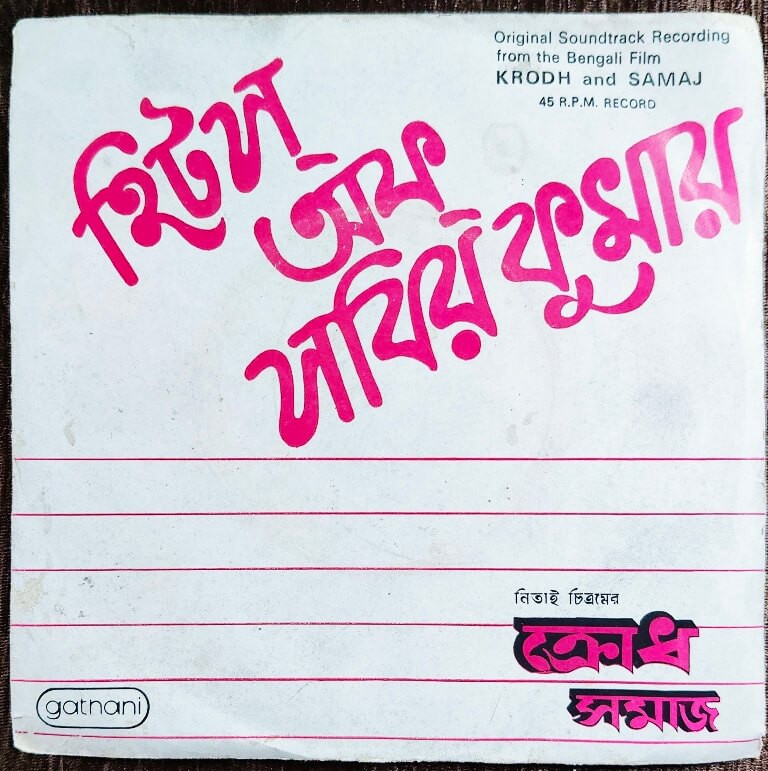 Original Soundtrack Recording
from the Bengali Film
KRODH and SAMAJ
45 R.P.M. RECORD
হিটস
অফ
সাবির কুমার
নিতাই চিত্রমের
ক্রোধ
সমাজ
gathani